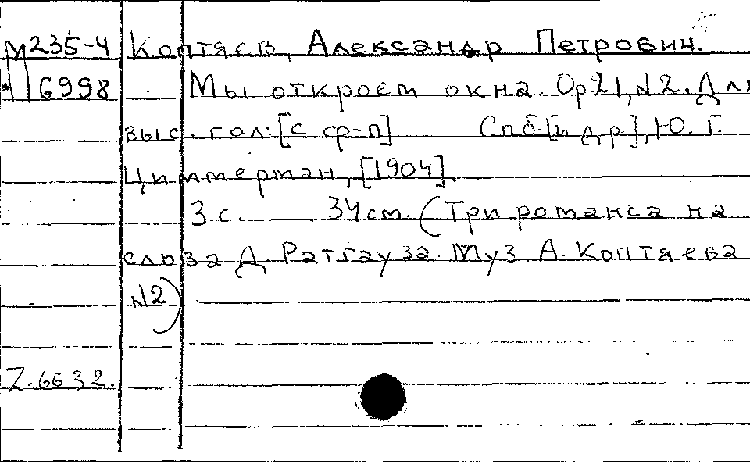 М235-4 Коптяев, Александр Петрович.
16998 Мы откроем окна. Ор21, №2. Для
выс. гол. [с ф-п] Спб[и др], Ю. Г.
Циммерман, [1904].
3 с. 34см. (Три романса на
слова Д. Ратгауза. Муз. А. Коптяева
№2)
Z.6632.